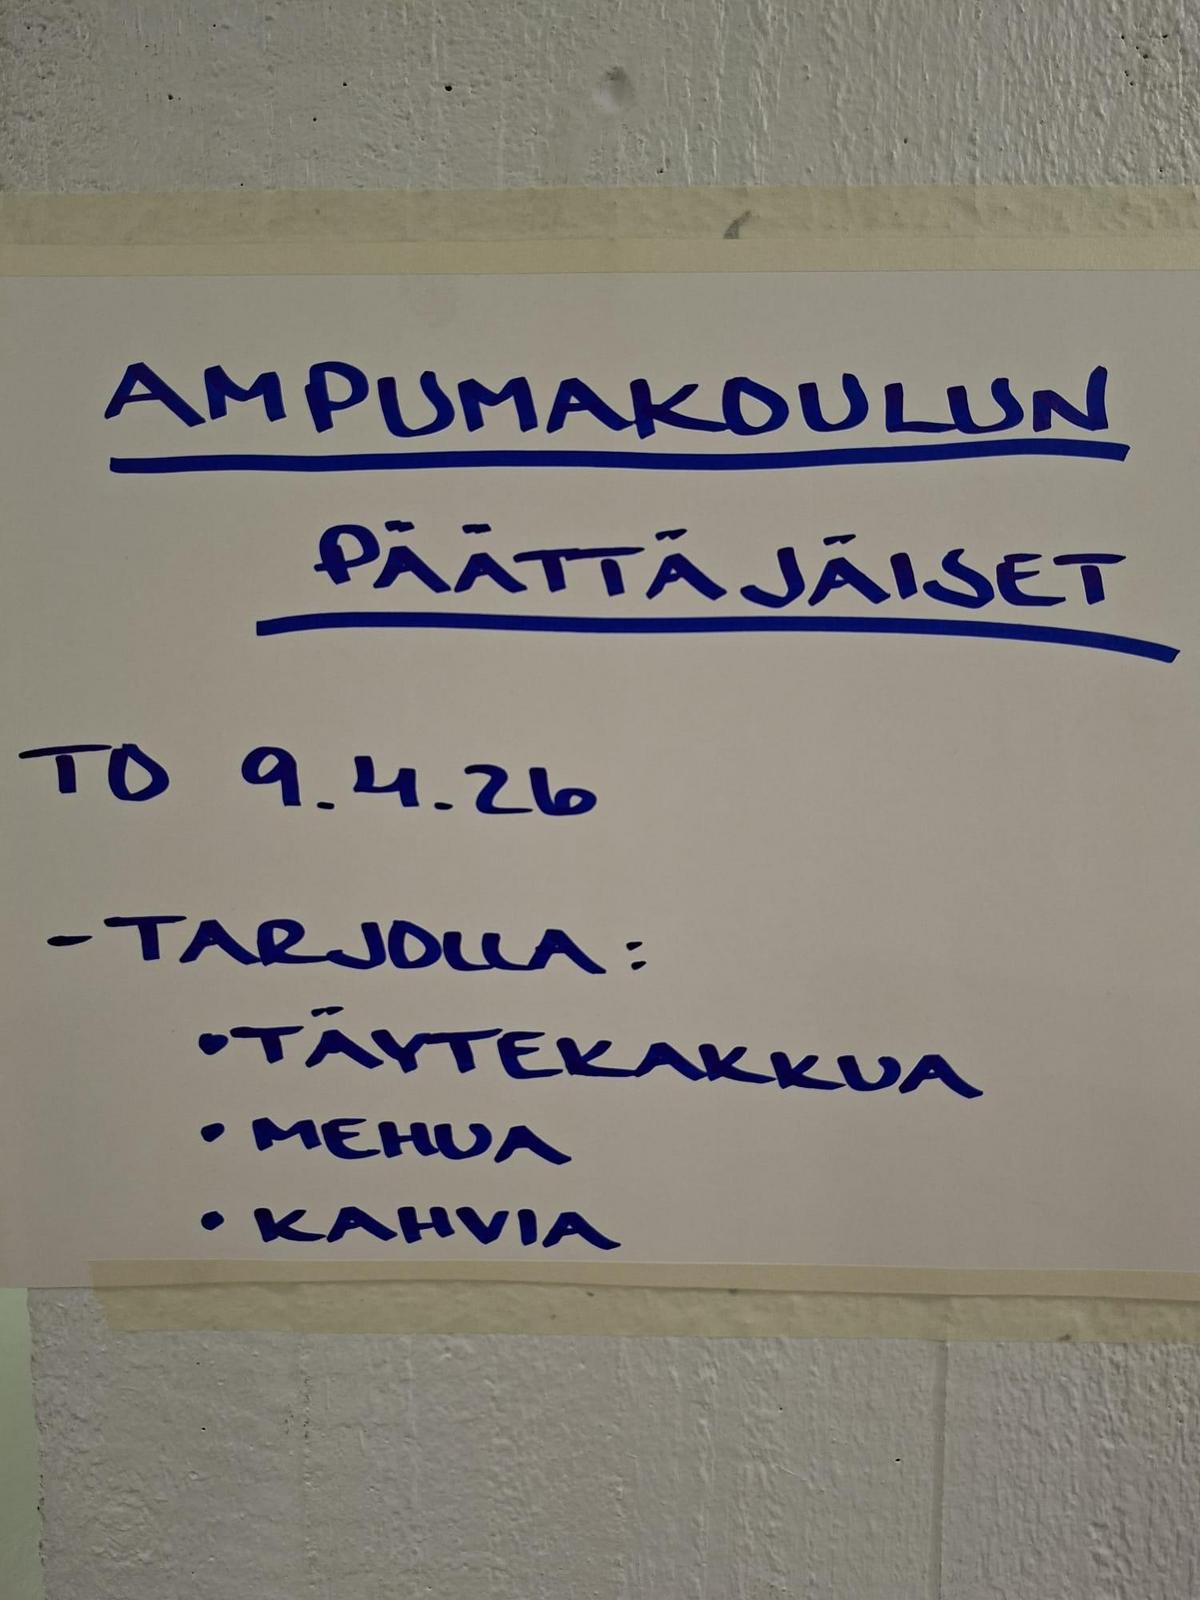 AMPUMAKOULUN
PÄÄTTÄJÄISET
TO 9.4.26
- TARJOLLA:
• TÄYTEKAKKUA
• MEHUA
• KAHVIA